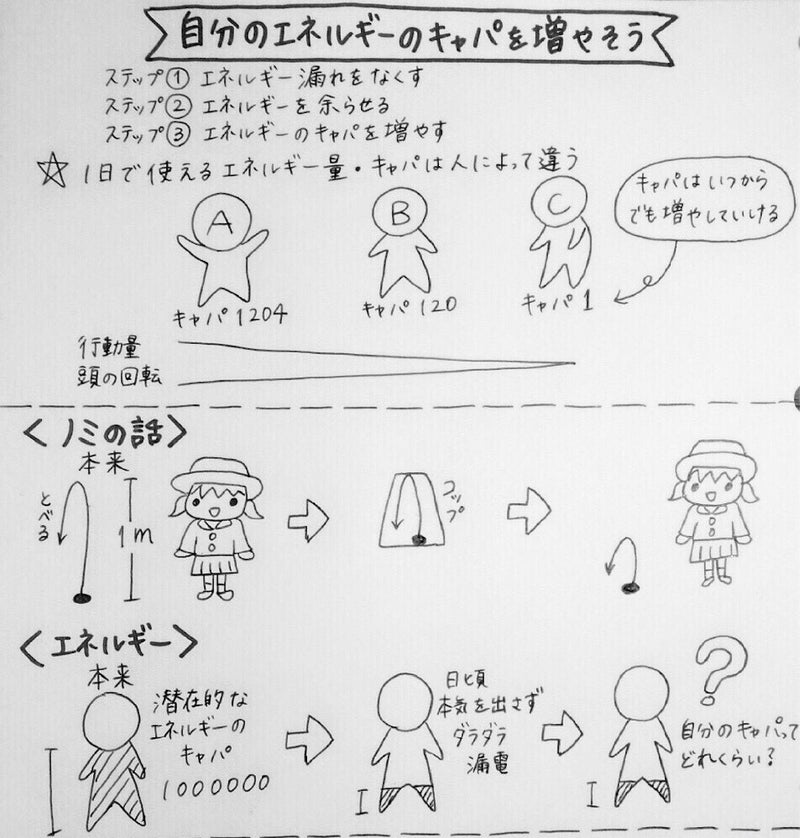 自分のエネルギーのキャパを増やそう
ステップ① エネルギー漏れをなくす
ステップ② エネルギーを余らせる
ステップ③ エネルギーのキャパを増やす
☆ 1日で使えるエネルギー量・キャパは人によって違う
キャパはいつから
でも増やしていける
A
B
C
キャパ1204
キャパ120
キャパ1
行動量
頭の回転
<ノミの話>
本来
とべる
1m
コップ
<エネルギー>
本来
潜在的な
エネルギーの
キャパ
1000000
日頃
本気を出さず
ダラダラ
漏電
?
自分のキャパって
どれくらい?